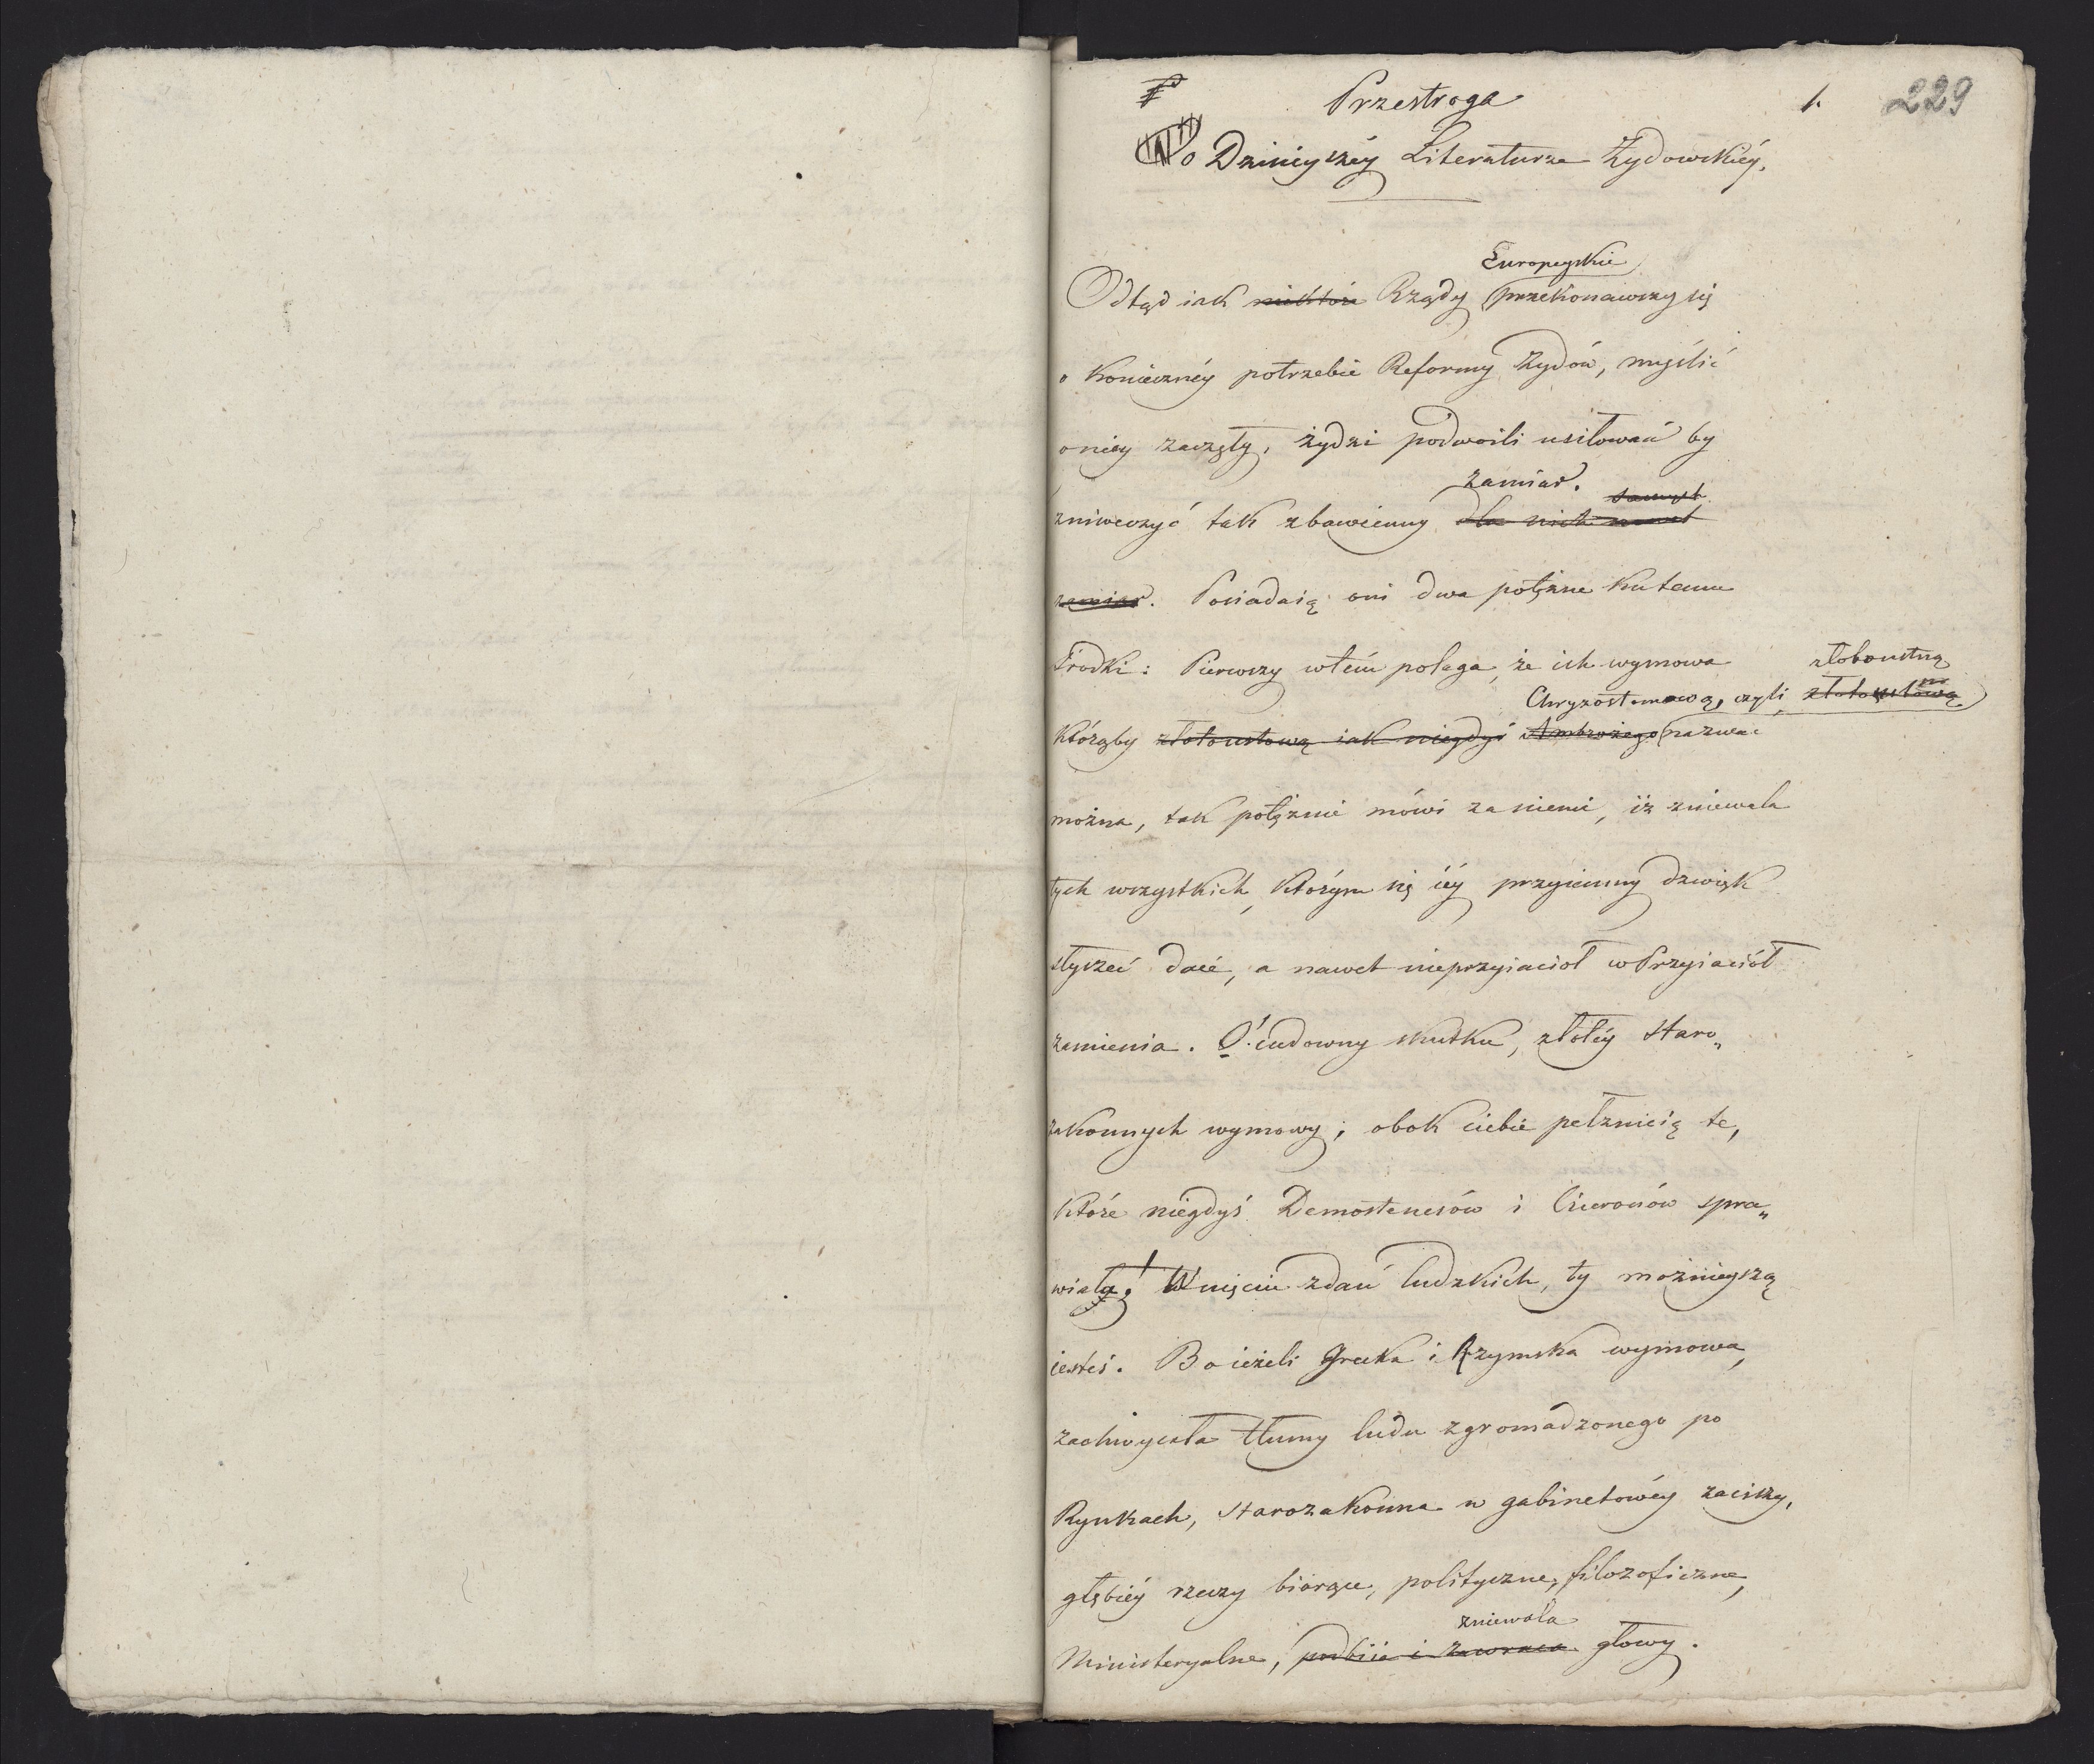 Przestroga 1. 229
o Dzisieyszéy Literaturze Żydowskiéy.
Europeyskie
Odtąd iak niektóre Rządy przekonawszy się
o koniecznéy potrzebie Reformy Żydów, myślić
o niey zaczęły, żydzi podwoili usiłowań by
zamiar. zamysł
zniweczyć tak zbawienny dla nich
zamiar. Posiadaią oni dwa potężne ku temu
Środki: Pierwszy w tém polega, że ich wymowa
złotoustną
Chryzostomową, czyli złotoustową
którąby złotoustową iak niegdyś Ambrożego nazwać
można, tak potężnie mówi za niemi, iż zniewala
tych wszystkich, którym się iéy przyiemny dzwięk
słyszeć daie, a nawet nieprzyiacioł w Przyiaciół
zamienia. O! cudowny skutku, złotéy Staro„
zakonnych wymowy; obok ciebie pełznieią te,
które niegdyś Demostenesów i Ciceronów spra„
wiały! W uięciu zdań ludzkich, ty możnieyszą
iesteś. Bo ieżeli Grecka i Rzymska wymowa,
zachwycała tłumy ludu zgromadzonego po
Rynkach, Starozakonna w gabinetowéy zaciszy,
głębiéy rzeczy biorąc, polityczne, filozoficzne,
zniewala
Ministeryalne, podbiia i zawraca głowy.